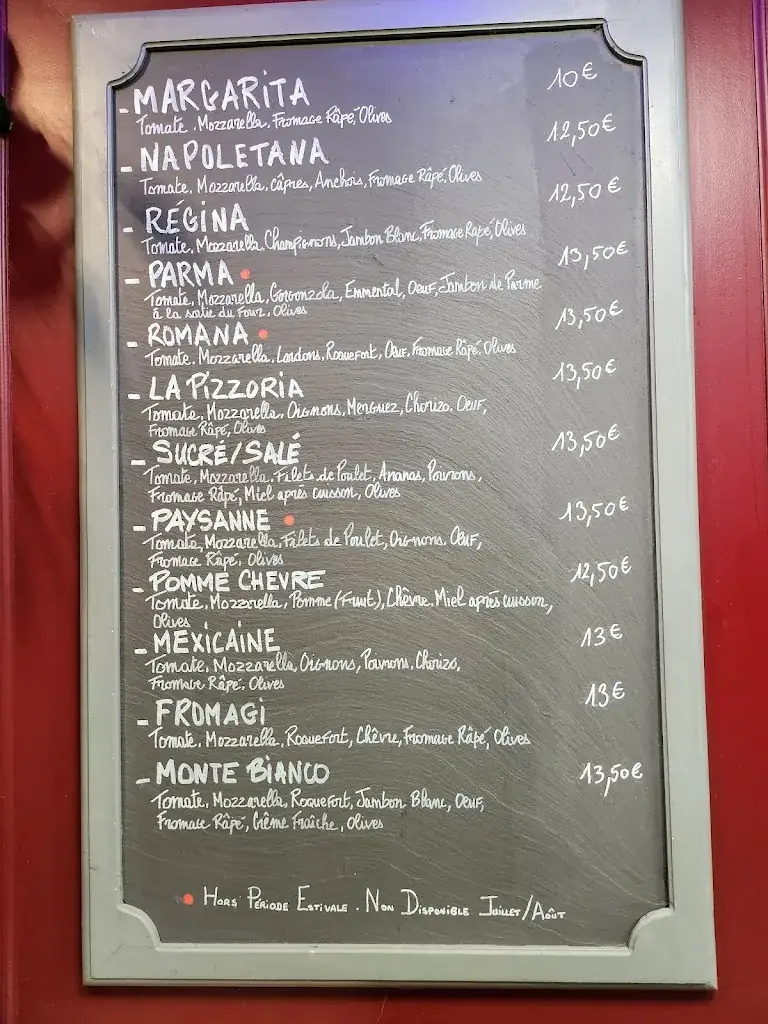 - MARGARITA 10€
Tomate, Mozzarella, Fromage Râpé, Olives
- NAPOLETANA 12,50€
Tomate, Mozzarella, câpres, Anchois, Fromage Râpé, Olives
- RÉGINA 12,50€
Tomate, Mozzarella, Champignons, Jambon Blanc, Fromage Rapé, Olives
- PARMA • 13,50€
Tomate, Mozzarella, Gorgonzola, Emmental, Oeuf, Jambon de Parme
à la sortie du Four, Olives
- ROMANA • 13,50€
Tomate, Mozzarella, Lardons, Roquefort, Oeuf, Fromage Râpé, Olives
- LA PIZZORIA 13,50€
Tomate, Mozzarella, Oignons, Merguez, Chorizo, Oeuf,
Fromage Râpé, Olives
- SUCRÉ/SALÉ 13,50€
Tomate, Mozzarella, Filets de Poulet, Ananas, Poivrons,
Fromage Râpé, Miel après cuisson, Olives
- PAYSANNE • 13,50€
Tomate, Mozzarella, Filets de Poulet, Oignons, Oeuf,
Fromage Râpé, Olives
- POMME CHEVRE 12,50€
Tomate, Mozzarella, Pomme (Fruit), Chèvre, Miel après cuisson,
Olives
- MEXICAINE 13€
Tomate, Mozzarella, Oignons, Poivrons, Chorizo,
Fromage Râpé, Olives
- FROMAGI 13€
Tomate, Mozzarella, Roquefort, Chèvre, Fromage Râpé, Olives
- MONTE BIANCO 13,50€
Tomate, Mozzarella, Roquefort, Jambon Blanc, Oeuf,
Fromage Râpé, Crème Fraîche, Olives
• HORS PÉRIODE ESTIVALE. NON DISPONIBLE JUILLET/AOÛT